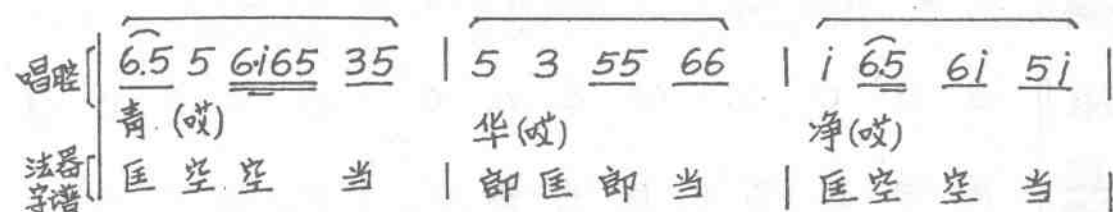 唱腔 6.5 5 6·i65 35 | 5 3 55 66 | i 65 6i 5i |
青.(哎) 华(哎) 净(哎)
法器字谱 匡 空 空 当 | 郎 匡 郎 当 | 匡 空 空 当 |